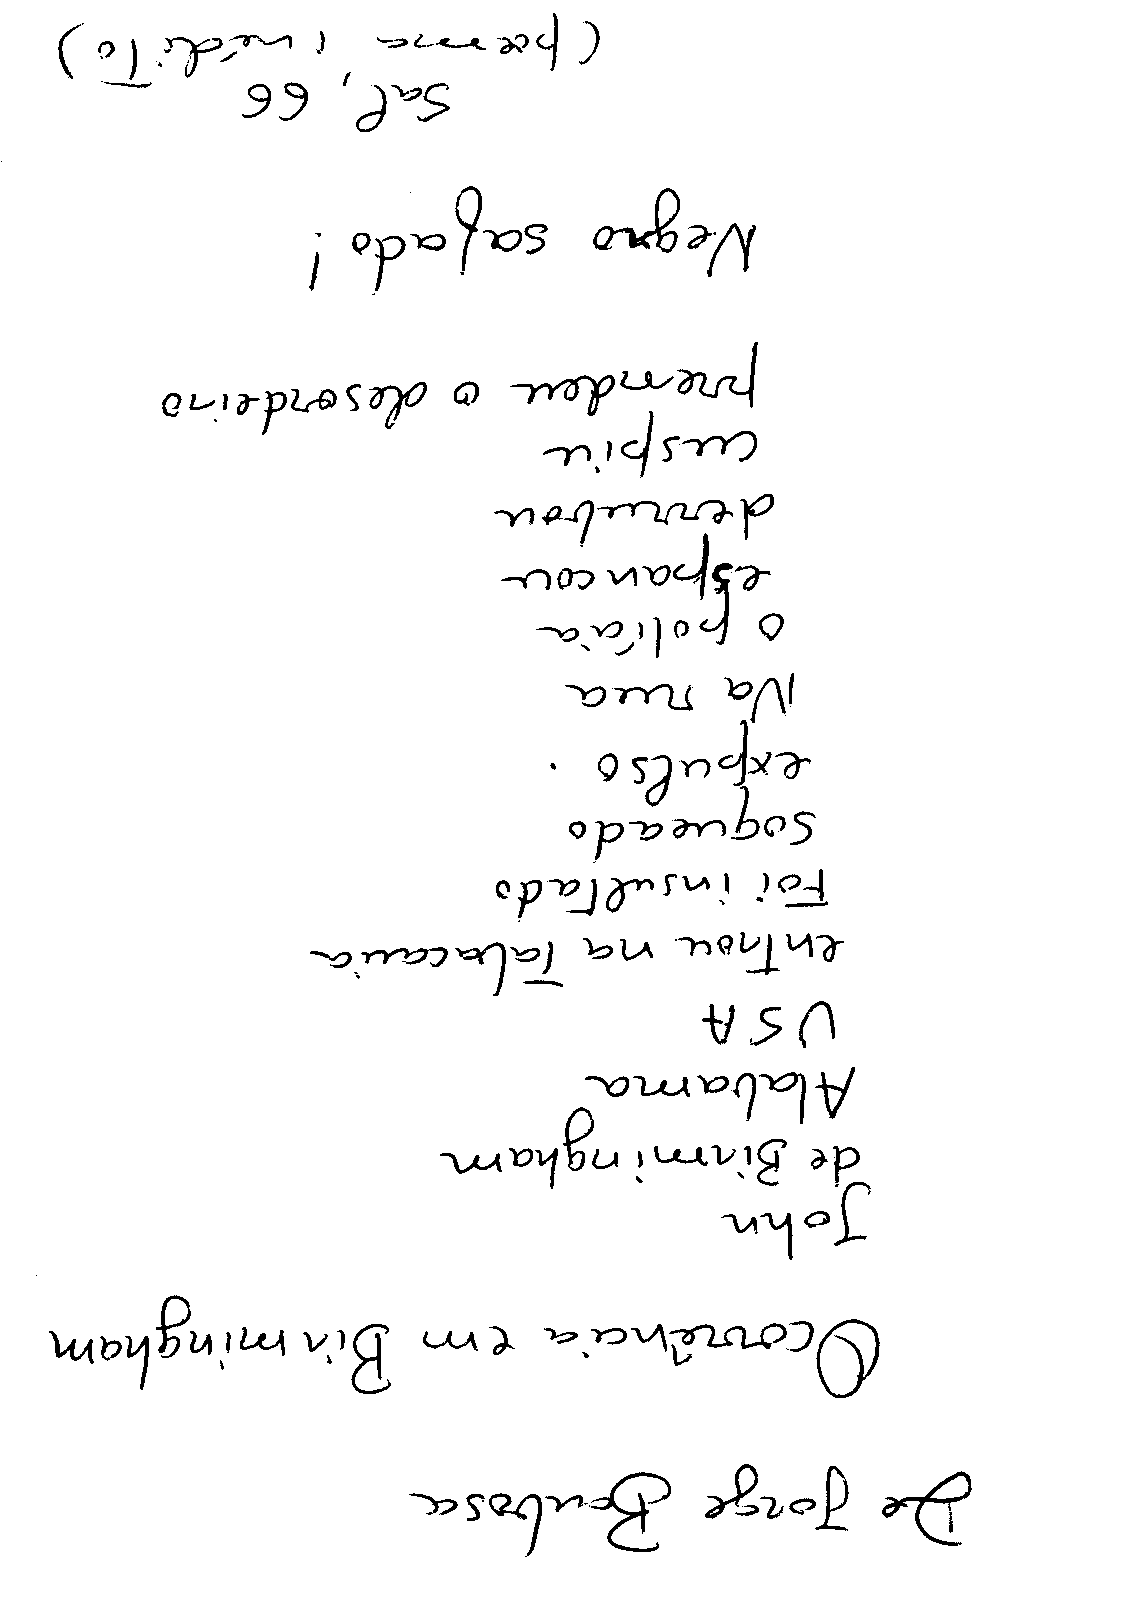 De Jorge Barbosa
Ocorrência em Birmingham
John
de Birmingham
Alabama
USA
entrou na tabacaria
Foi insultado
soqueado
expulso.
Na rua
o polícia
espancou
derrubou
cuspiu
prendeu o desordeiro
Negro safado!
Sal, 66
(poema inédito)